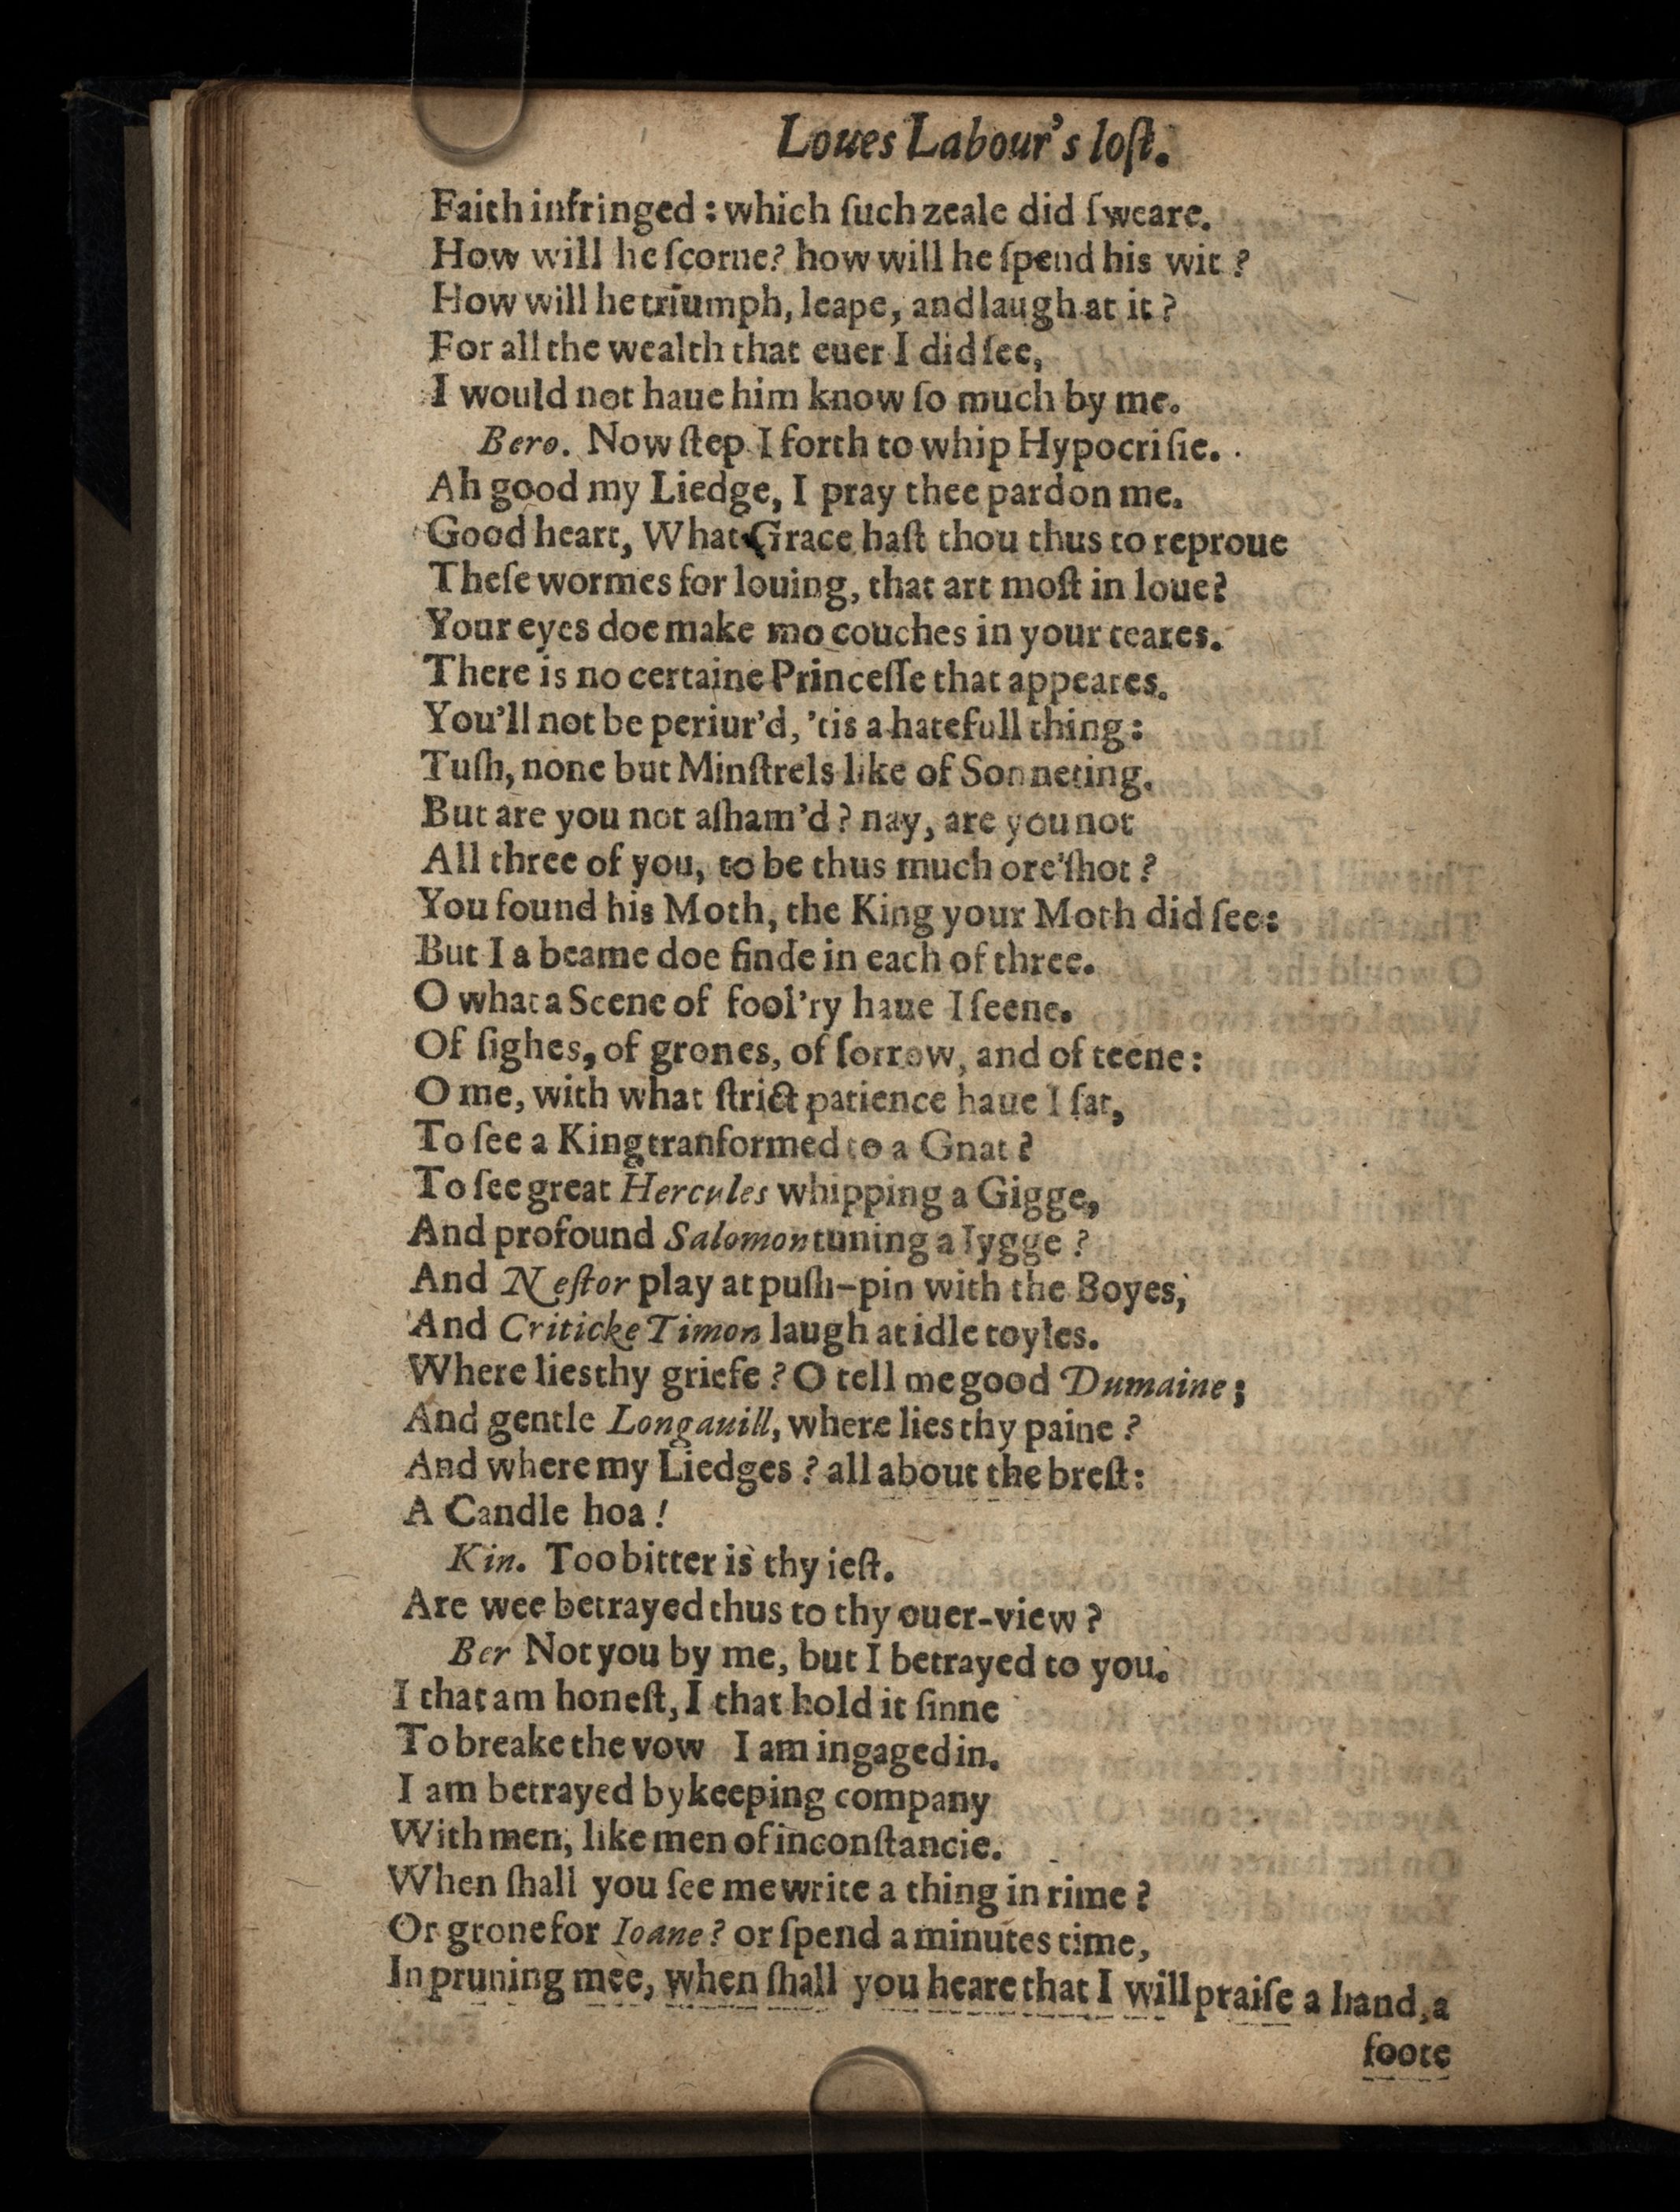 Loues Labour's loſt.
Faith infringed : which ſuch zeale did ſweare.
How will he ſcorne? how will he ſpend his wit ?
How will he triumph, leape, and laugh at it ?
For all the wealth that euer I did ſee,
I would not haue him know ſo much by me.
Bero. Now ſtep I forth to whip Hypocriſie.
Ah good my Liedge, I pray thee pardon me.
Good heart, What Grace haſt thou thus to reproue
Theſe wormes for louing, that art moſt in loue?
Your eyes doe make mo couches in your teares.
There is no certaine Princeſſe that appeares.
You'll not be periur'd, 'tis a hatefull thing :
Tuſh, none but Minſtrels like of Sonneting.
But are you not aſham'd ? nay, are you not
All three of you, to be thus much ore'ſhot ?
You found his Moth, the King your Moth did ſee:
But I a beame doe finde in each of three.
O what a Scene of fool'ry haue I ſeene.
Of ſighes, of grones, of ſorrow, and of teene :
O me, with what ſtrict patience haue I ſat,
To ſee a King tranformed to a Gnat ?
To ſee great Hercules whipping a Gigge,
And profound Salomon tuning a Iygge ?
And Neſtor play at puſh-pin with the Boyes,
And Criticke Timon laugh at idle toyles.
Where lies thy griefe ? O tell me good Dumaine ;
And gentle Longauill, where lies thy paine ?
And where my Liedges ? all about the breſt :
A Candle hoa !
Kin. Too bitter is thy ieſt.
Are wee betrayed thus to thy ouer-view ?
Ber Not you by me, but I betrayed to you.
I that am honeſt, I that hold it ſinne
To breake the vow I am ingaged in.
I am betrayed by keeping company
With men, like men of inconſtancie.
When ſhall you ſee me write a thing in rime ?
Or grone for Ioane ? or ſpend a minutes time,
In pruning mee, when ſhall you heare that I will praiſe a hand, a
foote